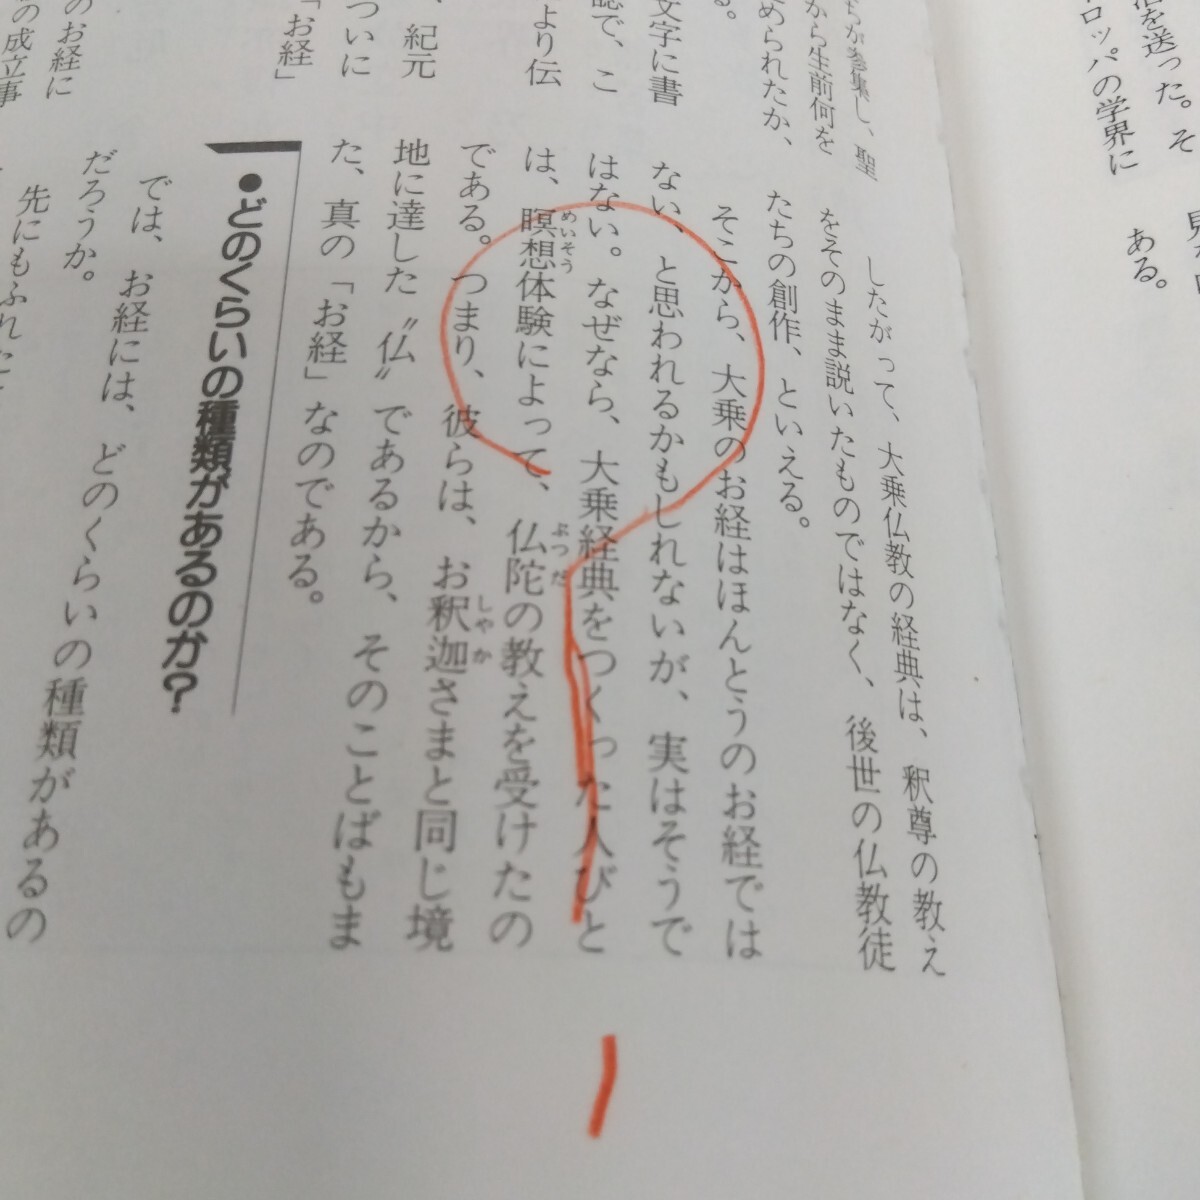 活を送った。そ
ロッパの学界に
ある。
が参集し、聖
から生前何を
められたか、
る。
文字に書
認で、こ
より伝
、紀元
ついに
「お経」
のお経に
の成立事
したがって、大乗仏教の経典は、釈尊の教え
をそのまま説いたものではなく、後世の仏教徒
たちの創作、といえる。
そこから、大乗のお経はほんとうのお経では
ない、と思われるかもしれないが、実はそうで
はない。なぜなら、大乗経典をつくった人びと
は、瞑想体験によって、仏陀の教えを受けたの
めいそう
ぶつだ
である。つまり、彼らは、お釈迦さまと同じ境
しゃか
地に達した〝仏〟であるから、そのことばもま
た、真の「お経」なのである。
●どのくらいの種類があるのか?
では、お経には、どのくらいの種類があるの
だろうか。
先にもふれた